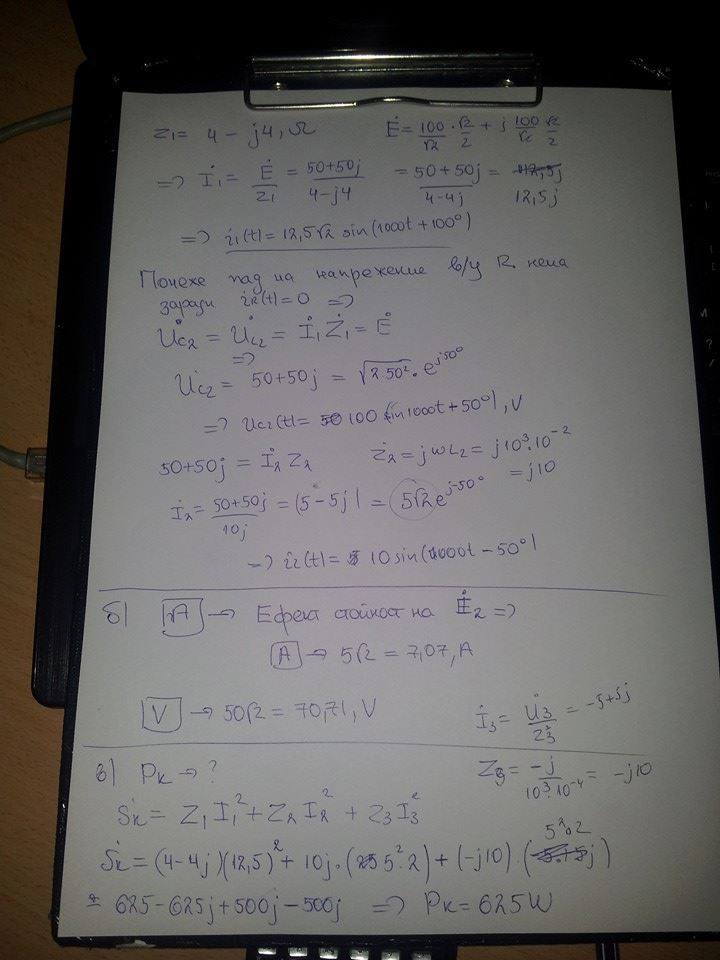 Z₁ = 4 - j4, Ω    Ė = 100/√2 · √2/2 + j 100/√2 √2/2
=> İ₁ = Ė/Z₁ = 50+50j/4-j4 = 50+50j/4-4j = 12,5j
=> i₁(t) = 12,5√2 sin(1000t + 100°)
Понеже пад на напрежение в/у R няма
заради i₂(t) = 0 =>
U̇c₂ = U̇c₂ = İ₁ Ż₁ = Ė
=>
U̇c₂ = 50+50j = √2 50² · e^j50°
=> Uc₂(t) = 100 sin 1000t + 50°), V
50+50j = İ₂ Z₂    Ż₂ = jωL₂ = j10³·10⁻²
= j10
İ₂ = 50+50j/10j = (5-5j) = 5√2 e^j-50°
=> i₂(t) = 10 sin(1000t - 50°)
б) A → Ефект стойност на İ₂ =>
A → 5√2 = 7,07, A
V → 50√2 = 70,71, V    İ₃ = U̇₃/Z₃ = -5+5j
в) Pк → ?    Z₃ = -j/10³·10⁻⁴ = -j10
Ṡк = Z₁I₁² + Z₂I₂² + Z₃I₃²
Ṡк = (4-4j)(12,5)² + 10j·(5²·2) + (-j10)·(5²·2)
= 625 - 625j + 500j - 500j => Pк = 625W